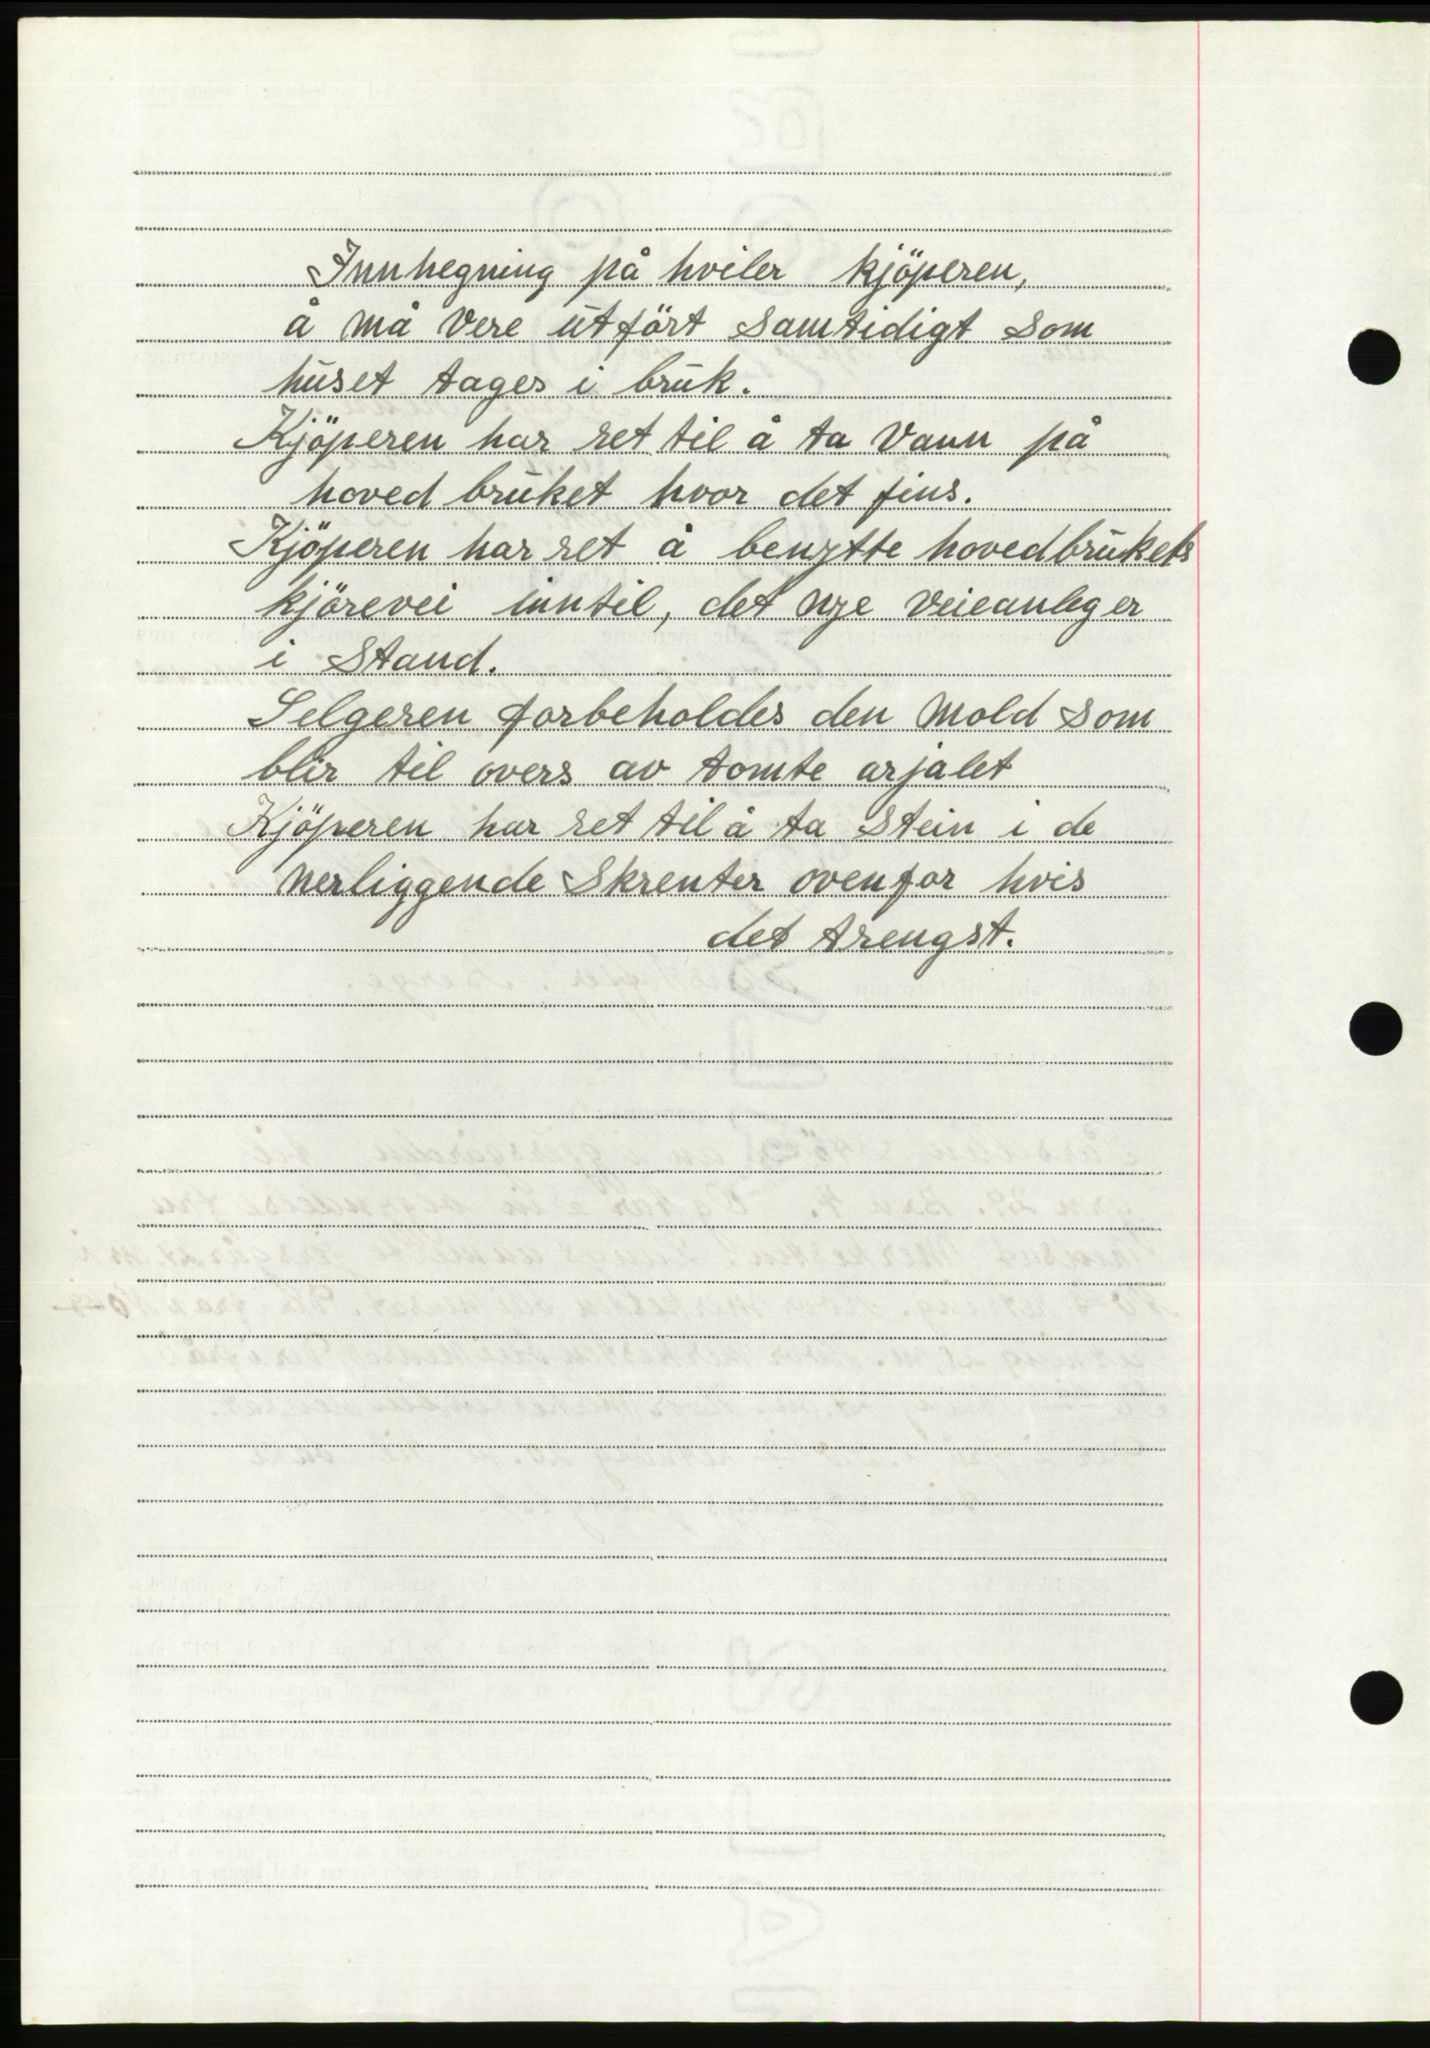 Innhegning på hviler kjöperen,
å må vere utfört samtidigt som
huset tages i bruk.
Kjöperen har ret til å ta vann på
hoved bruket hvor det fins.
Kjöperen har ret å benytte hovedbrukets
kjörevei inntil, det nye veieanleg er
i stand.
Selgeren forbeholdes den mold som
blir til overs av tomte arjalet
Kjöperen har ret til å ta stein i de
nerliggende Skrenter ovenfor hvis
det trengst.